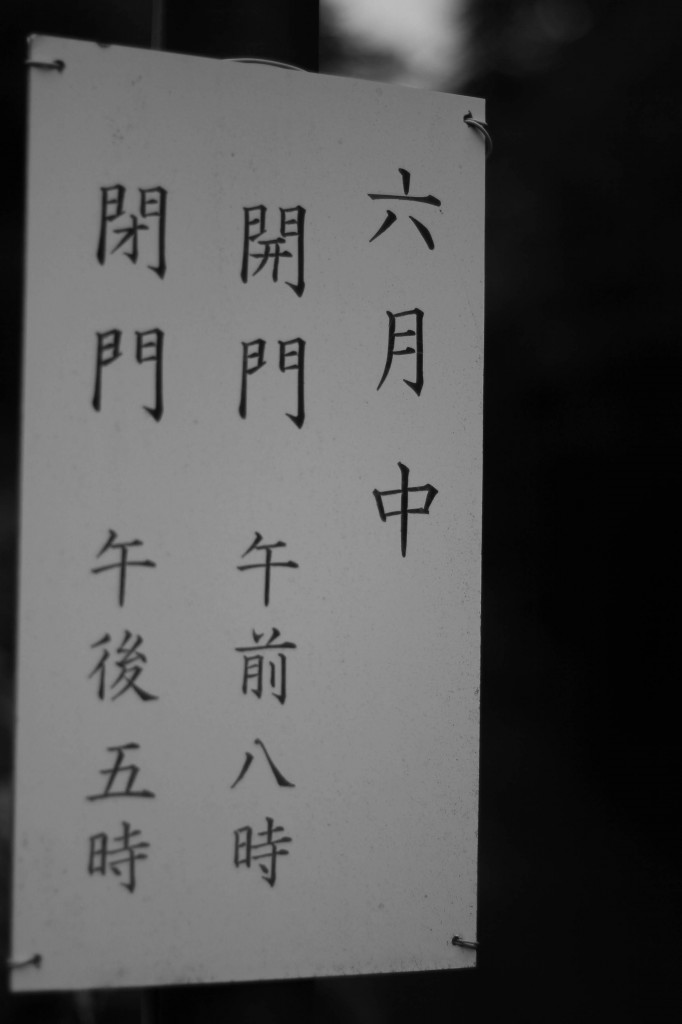 六月中
開門 午前八時
閉門 午後五時